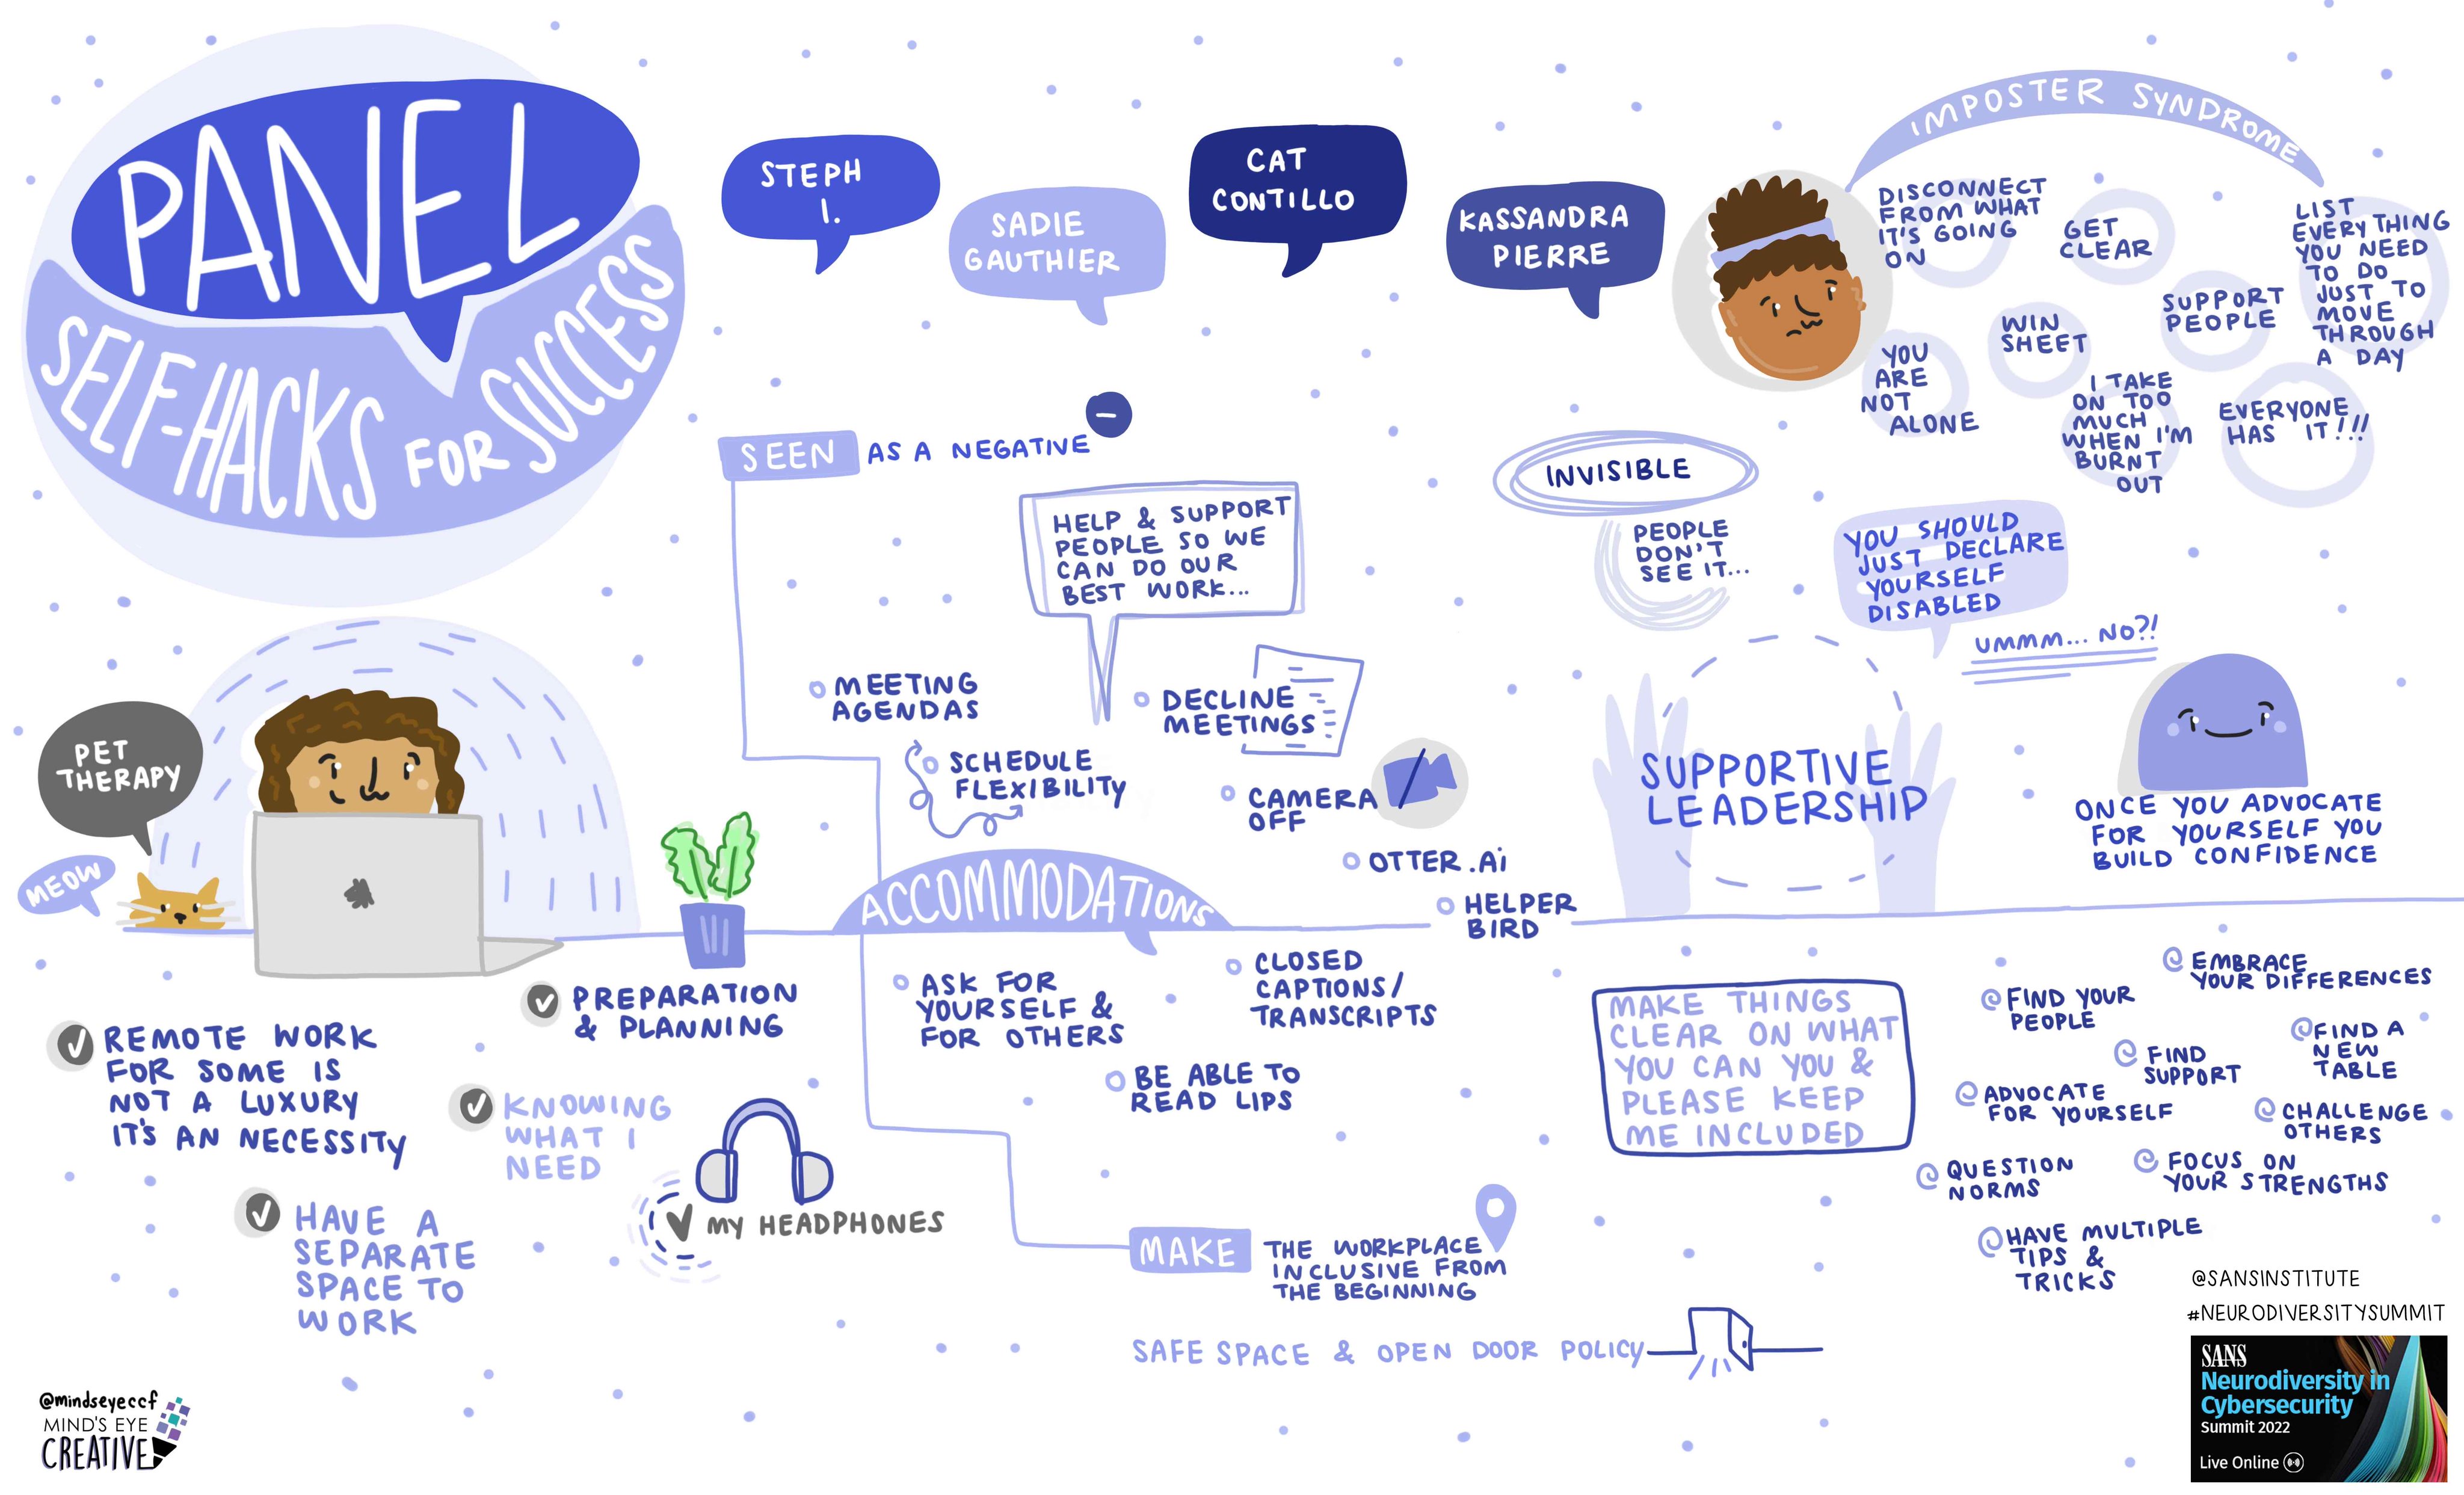 PANEL
SELF-HACKS FOR SUCCESS
STEPH
I.
SADIE
GAUTHIER
CAT
CONTILLO
KASSANDRA
PIERRE
IMPOSTER SYNDROME
DISCONNECT
FROM WHAT
IT'S GOING
ON
GET
CLEAR
LIST
EVERYTHING
YOU NEED
TO DO
JUST TO
MOVE
THROUGH
A DAY
SUPPORT
PEOPLE
WIN
SHEET
YOU
ARE
NOT
ALONE
I TAKE
ON TOO
MUCH
WHEN I'M
BURNT
OUT
EVERYONE
HAS IT!!!
SEEN AS A NEGATIVE
HELP & SUPPORT
PEOPLE SO WE
CAN DO OUR
BEST WORK...
INVISIBLE
PEOPLE
DON'T
SEE IT...
YOU SHOULD
JUST DECLARE
YOURSELF
DISABLED
UMMM... NO?!
PET
THERAPY
MEOW
MEETING
AGENDAS
DECLINE
MEETINGS
SCHEDULE
FLEXIBILITY
CAMERA
OFF
OTTER.Ai
HELPER
BIRD
ACCOMMODATIONS
ASK FOR
YOURSELF &
FOR OTHERS
CLOSED
CAPTIONS/
TRANSCRIPTS
BE ABLE TO
READ LIPS
SUPPORTIVE
LEADERSHIP
ONCE YOU ADVOCATE
FOR YOURSELF YOU
BUILD CONFIDENCE
REMOTE WORK
FOR SOME IS
NOT A LUXURY
IT'S AN NECESSITY
PREPARATION
& PLANNING
KNOWING
WHAT I
NEED
HAVE A
SEPARATE
SPACE TO
WORK
MY HEADPHONES
MAKE THE WORKPLACE
INCLUSIVE FROM
THE BEGINNING
SAFE SPACE & OPEN DOOR POLICY
MAKE THINGS
CLEAR ON WHAT
YOU CAN YOU &
PLEASE KEEP
ME INCLUDED
EMBRACE
YOUR DIFFERENCES
FIND YOUR
PEOPLE
FIND A
NEW
TABLE
FIND
SUPPORT
ADVOCATE
FOR YOURSELF
CHALLENGE
OTHERS
QUESTION
NORMS
FOCUS ON
YOUR STRENGTHS
HAVE MULTIPLE
TIPS &
TRICKS
@SANSINSTITUTE
#NEURODIVERSITYSUMMIT
SANS
Neurodiversity in
Cybersecurity
Summit 2022
Live Online
@mindseyeccf
MIND'S EYE
CREATIVE